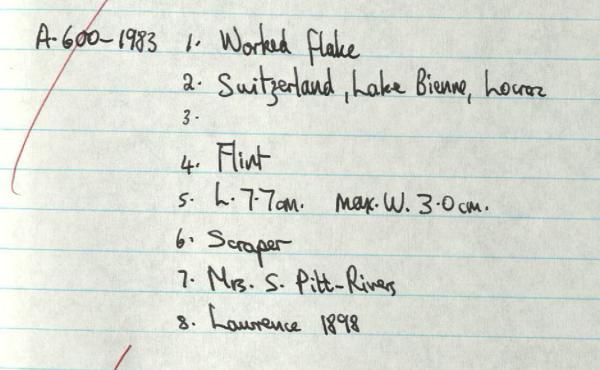 A·600-1983 1. Worked flake
2. Switzerland, Lake Bienne, Locraz
3.
4. Flint
5. L. 7·7cm. max. W. 3·0cm.
6. Scraper
7. Mrs. S. Pitt-Rivers
8. Lawrence 1898